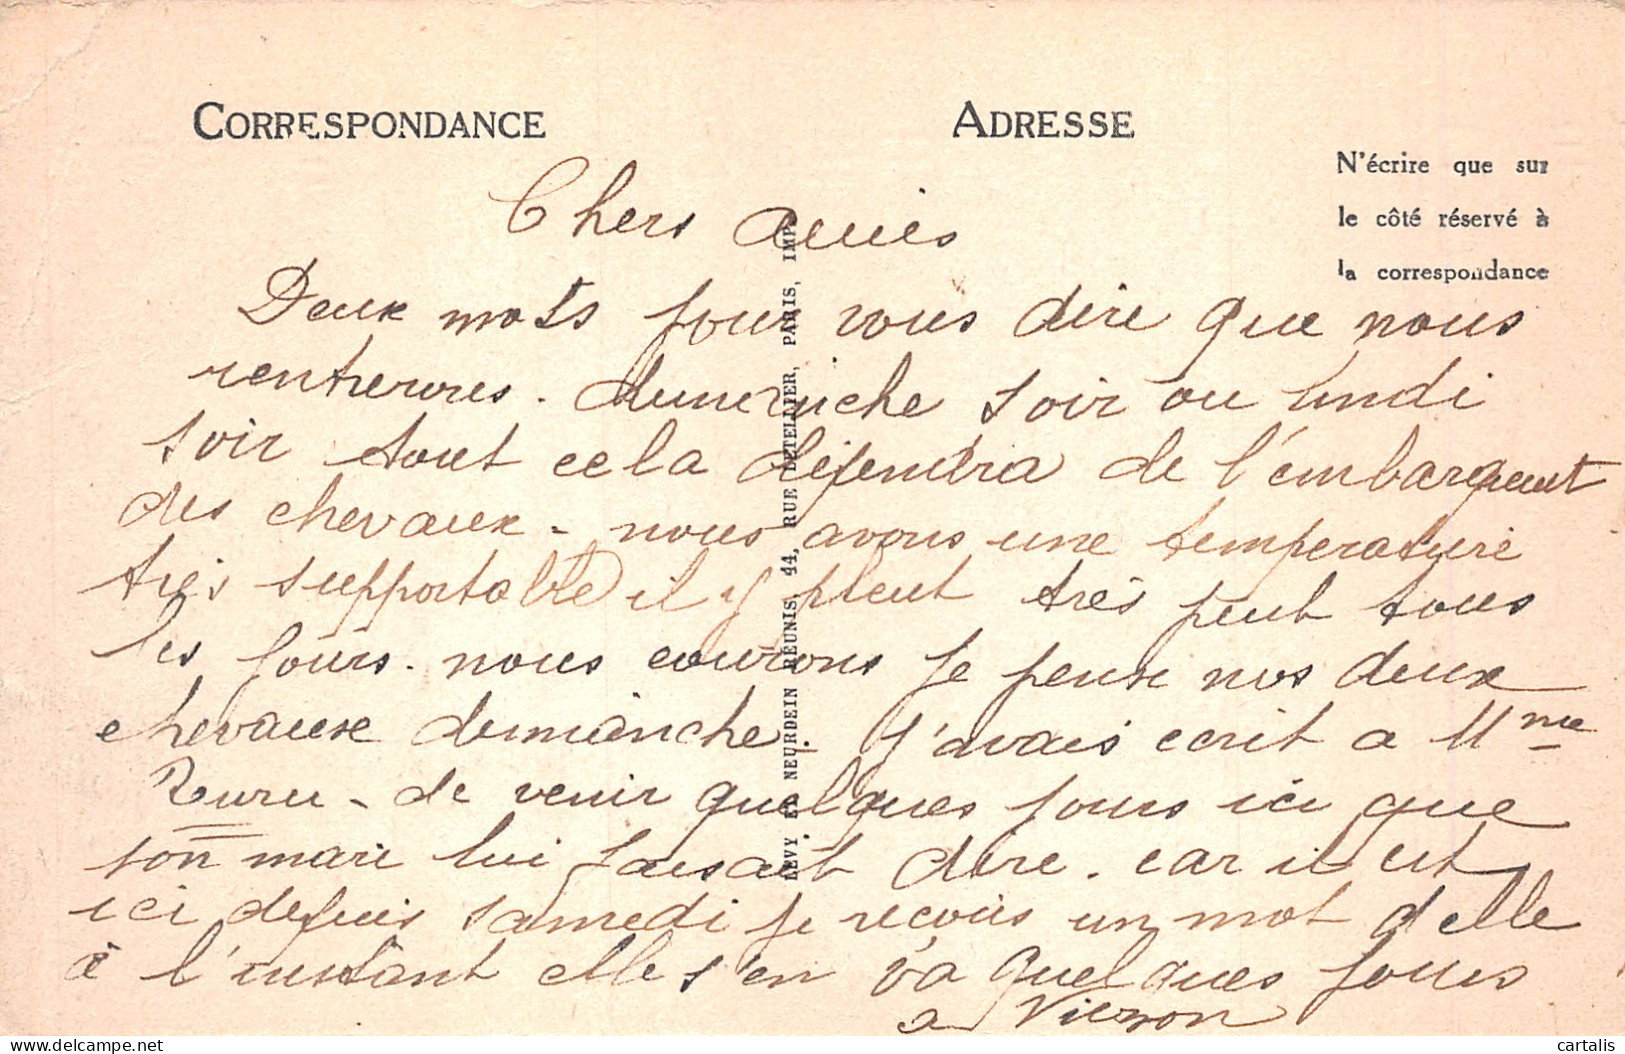 CORRESPONDANCE
ADRESSE
N'écrire que sur
le côté réservé à
la correspondance
Chers amies
Deux mots pour vous dire que nous
rentrerons. dimenche soir ou lundi
soir tout cela dépendra de l'embarquent
des chevaux - nous avons une température
très supportable il y pleut très peut tous
les jours. nous courrons je pense nos deux
chevaux dimanche. J'avais ecrit a Mme
de venir quelques jours ici que
son mari lui faisait dire. car il est
ici depuis samedi je recois un mot d elle
à l'instant elle s'en va quelques jours
a Vierzon
LÉVY ET NEURDEIN RÉUNIS, 44, RUE LETELLIER, PARIS, IMP.
cartalis
delcampe.net